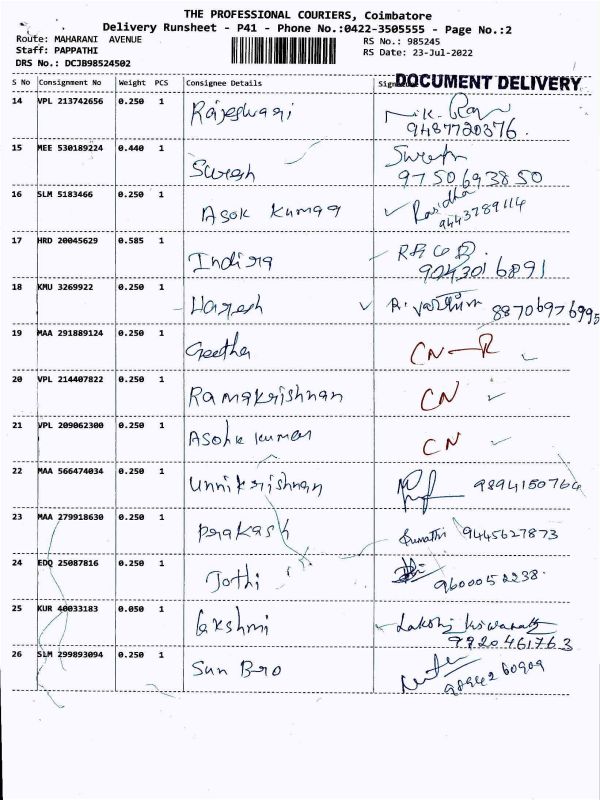 THE PROFESSIONAL COURIERS, Coimbatore
Delivery Runsheet - P41 - Phone No.:0422-3505555 - Page No.:2
Route: MAHARANI AVENUE RS No.: 985245
Staff: PAPPATHI RS Date: 23-Jul-2022
DRS No.: DCJB98524502
S No Consignment No Weight PCS Consignee Details DOCUMENT DELIVERY
14 VPL 213742656 0.250 1 Rajeshwari
9487720376.
15 MEE 530189224 0.440 1 Suresh Suresh
9750693850
16 SLM 5183466 0.250 1 Asok Kumar
9443789114
17 HRD 20045629 0.585 1 Indira
9043016891
18 KMU 3269922 0.250 1 Haresh 88706976995
19 MAA 291889124 0.250 1 Geetha CN-R
20 VPL 214407822 0.250 1 Ramakrishnan CN
21 VPL 209062300 0.250 1 Asohk kumar CN
22 MAA 566474034 0.250 1 Unnikrishnan 9894150764
23 MAA 279918630 0.250 1 Prakash Sumathi 9445627873
24 EDQ 25087816 0.250 1 Jothi 9600052238.
25 KUR 40033183 0.050 1 Lakshmi
9920461763
26 SLM 299893094 0.250 1 Sun Bro
9894260909